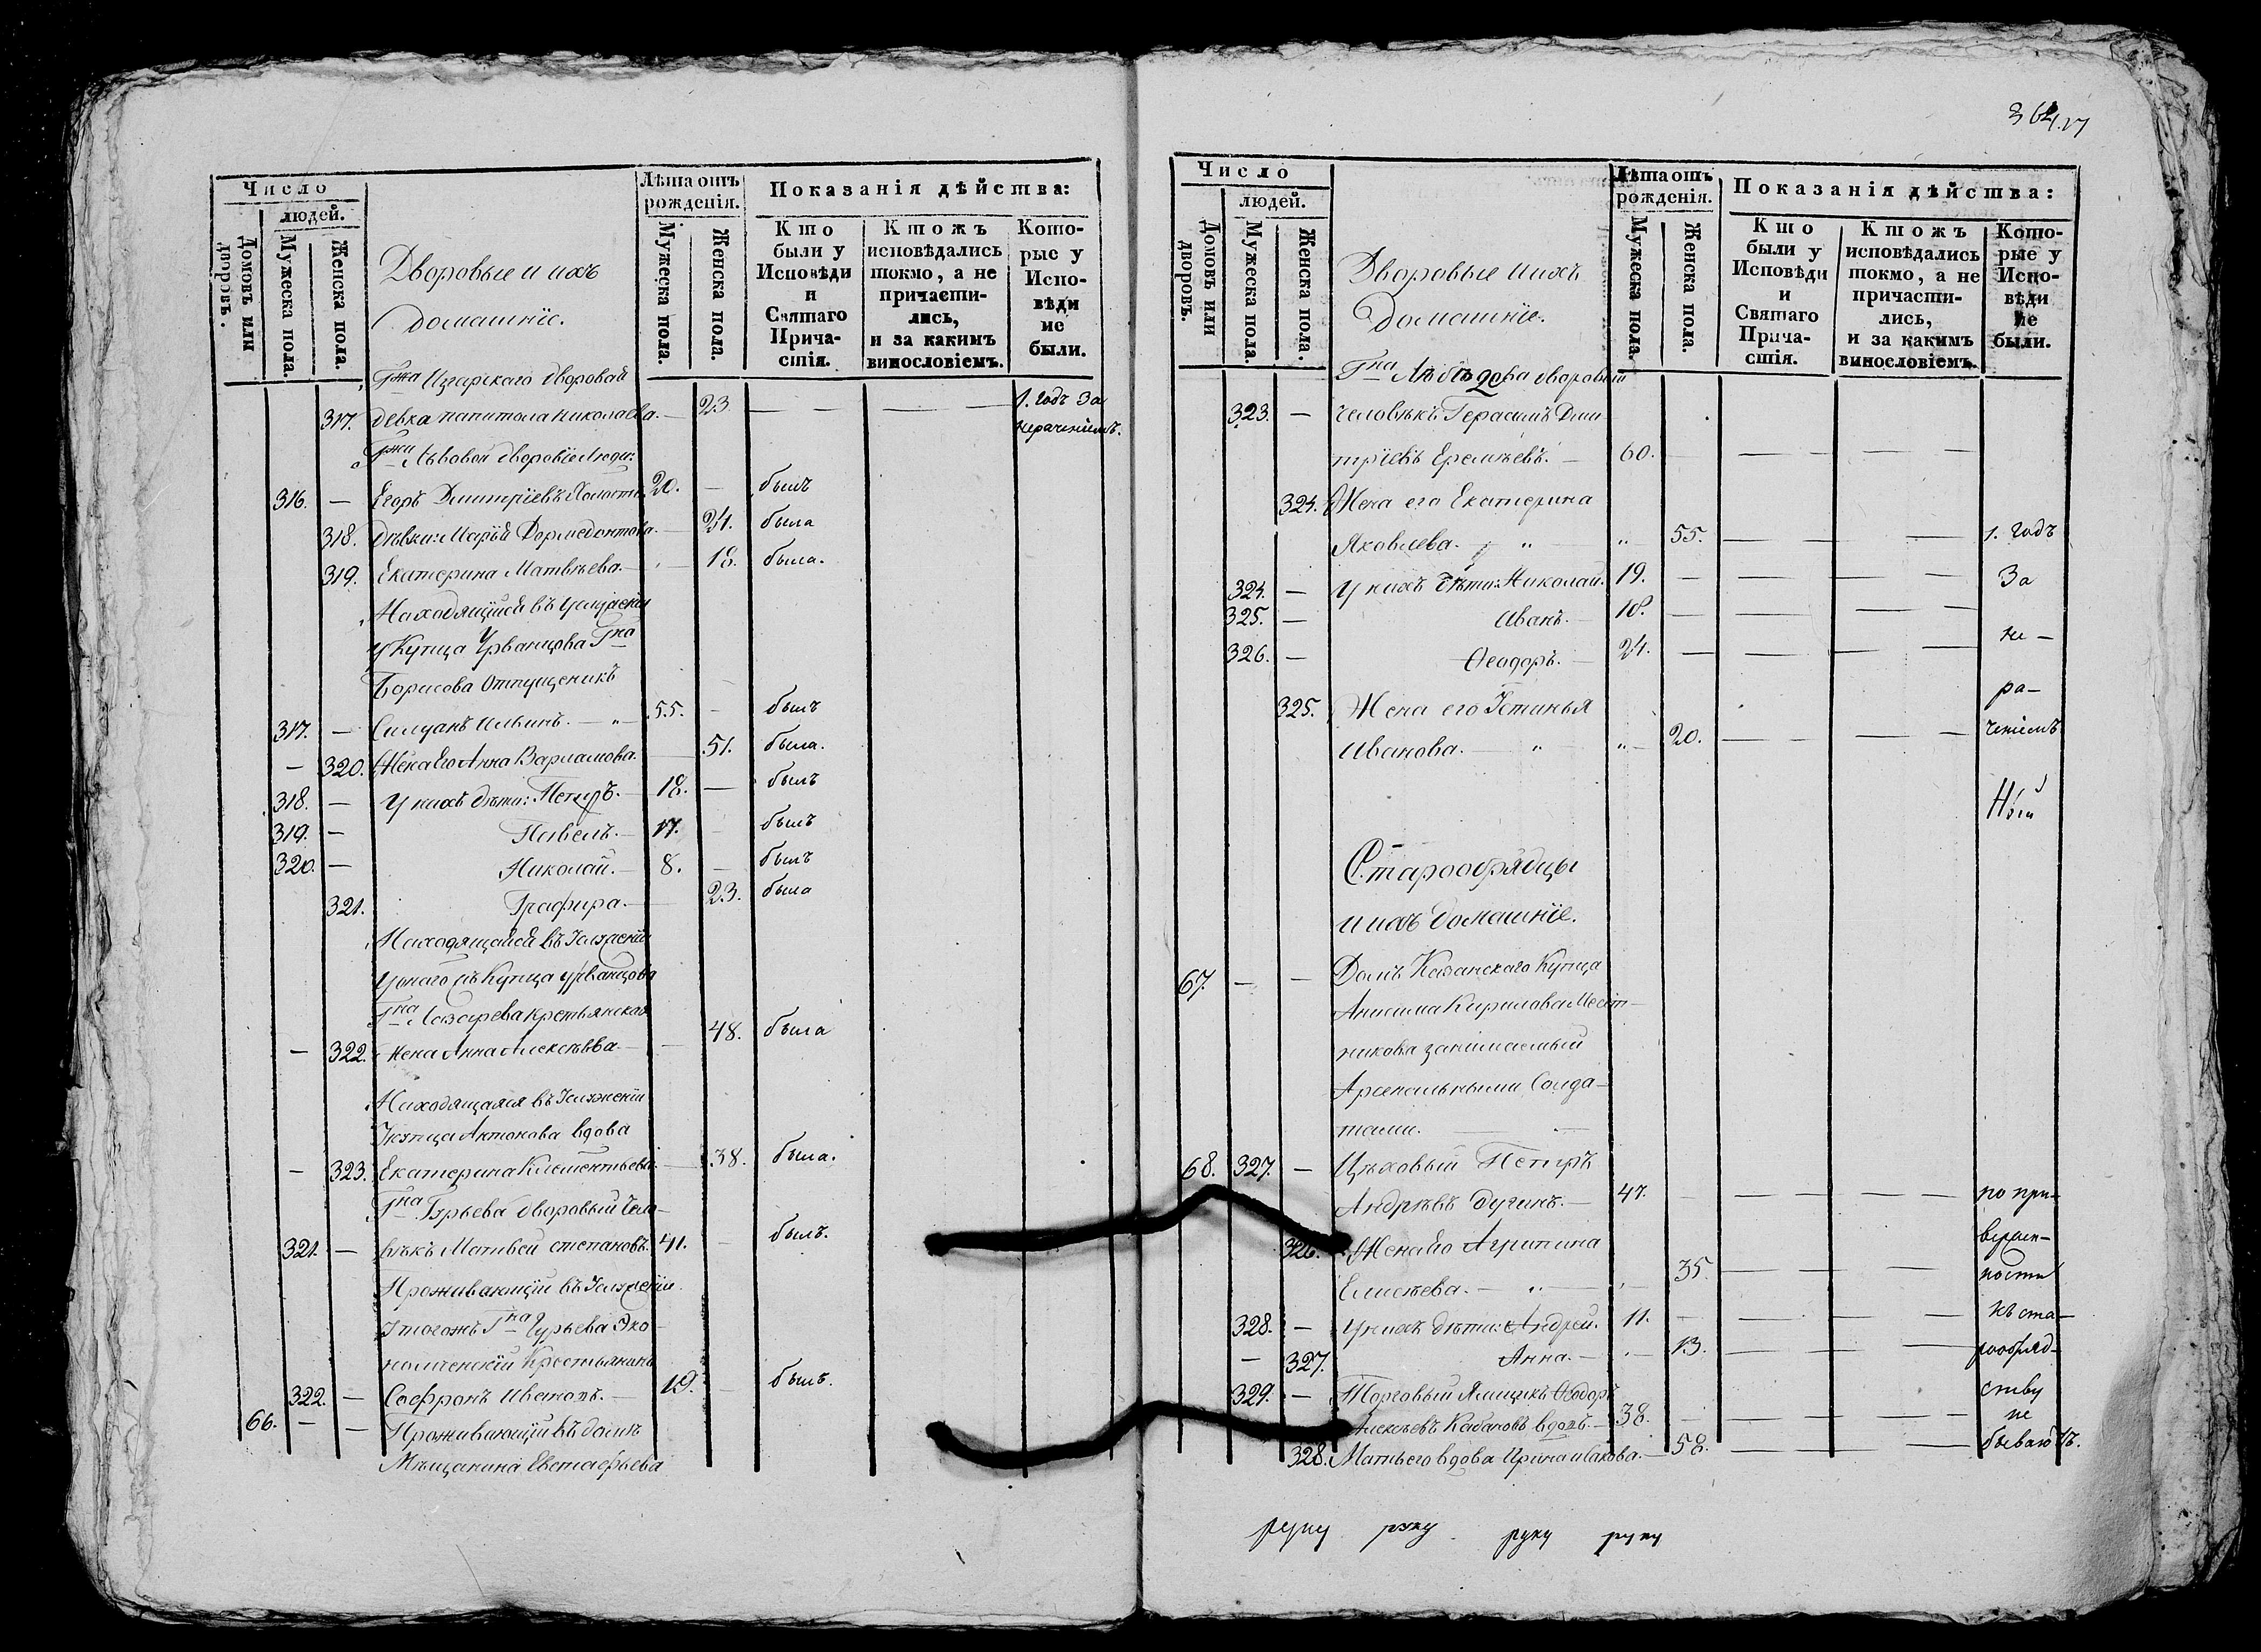 Число
людей.
Домовъ или дворовъ.
Мужеска пола.
Женска пола.
Дворовые и ихъ
домашніе.
Лѣта отъ
рожденія.
Мужеска пола.
Женска пола.
Показанія дѣйства:
Кто
были у
Исповѣди
и
Святаго
Прича-
стія.
Ктожъ
исповѣдались
токмо, а не
причасти-
лись,
и за какимъ
винословіемъ.
Кото-
рые у
Испо-
вѣди
не
были.
дворовая
317. девка Капитола Николаева. — 23. — — — — 1. годъ за
нераченіемъ.
Гжи Львовой дворовіе люди:
316. — Егоръ Дмитріевъ 20. — былъ
318. дѣвки: Марья Дормедонтова. — 24. была
319. Екатерина Матвѣева. — 18. была.
Находящійся въ услуженіи
у Купца Урванцова Гна
Борисова Отпущеникъ
317. — Силуанъ Ильинъ. — „ — 55. — былъ
— 320. Жена его Анна Варламова. — 51. была.
318. — У нихъ дѣти: Петръ. — 18. — былъ
319. — Павелъ. — 17. — былъ
320. — Николай. — 8. — былъ
321. Графира. — 23. была
Находящайся въ услуженіи
у онаго жъ Купца Урванцова
Гна Лазарева крестьянская
— 322. жена Анна Алексѣева. — 48. была
Находящаяся въ услуженіи
Купца Антонова вдова
— 323. Екатерина Клементьева. — 38. была.
Гна Гурьева дворовый чело-
321. — вѣкъ Матвей Степановъ. 41. — былъ.
Проживающій въ услуженіи
у тогожъ Гна Гурьева Эко-
номическій Крестьянинъ
322. — Софронъ Ивановъ. — 19. — былъ.
66. — — Проживающій въ домѣ
Мѣщанина Евстафьева
364. 17
Число
людей.
Домовъ или дворовъ.
Мужеска пола.
Женска пола.
Дворовые и ихъ
домашніе.
Лѣта отъ
рожденія.
Мужеска пола.
Женска пола.
Показанія дѣйства:
Кто
были у
Исповѣди
и
Святаго
Прича-
стія.
Ктожъ
исповѣдались
токмо, а не
причасти-
лись,
и за какимъ
винословіемъ.
Кото-
рые у
Испо-
вѣди
не
были.
Гна дворовый
323. — человѣкъ Герасимъ Дми-
тріевъ Еремѣевъ. — 60. — — — — —
324. Жена его Екатерина
Яковлева. — „ — „ — 55. — — — — 1. годъ
324. — У нихъ дѣти: Николай. 19. — — — — — за
325. — Иванъ. — 18. — — — — —
326. — Ѳеодоръ. — 24. — — — — — не —
325. Жена его Устинья ра-
Иванова. — „ — „ — 20. — — — — ченіемъ
Старообрядцы
и ихъ домашніе.
67. — — Домъ Казанскаго Купца
Анисима Кирилова Мест-
никова занимаемый
Арсенальными Солда-
тами. — —
68. 327. — Цѣховый Петръ
Андрѣевъ 47. — — — — — по при-
326. Жена его Агрипина вержен-
Елисѣева. — „ — 35. — — — — ности
328. — У нихъ дѣти: Андрей. 11. — — — — — къ ста-
— 327. Анна. — 13. — — — — рообряд-
329. — Торговый Ямщикъ Ѳеодоръ ству
Алексѣевъ Кабановъ вдовъ. — 38. — — — — — не
328. Мать его вдова Ирина Иванова. — 58. — — — — бываютъ.
руку руку руку руку